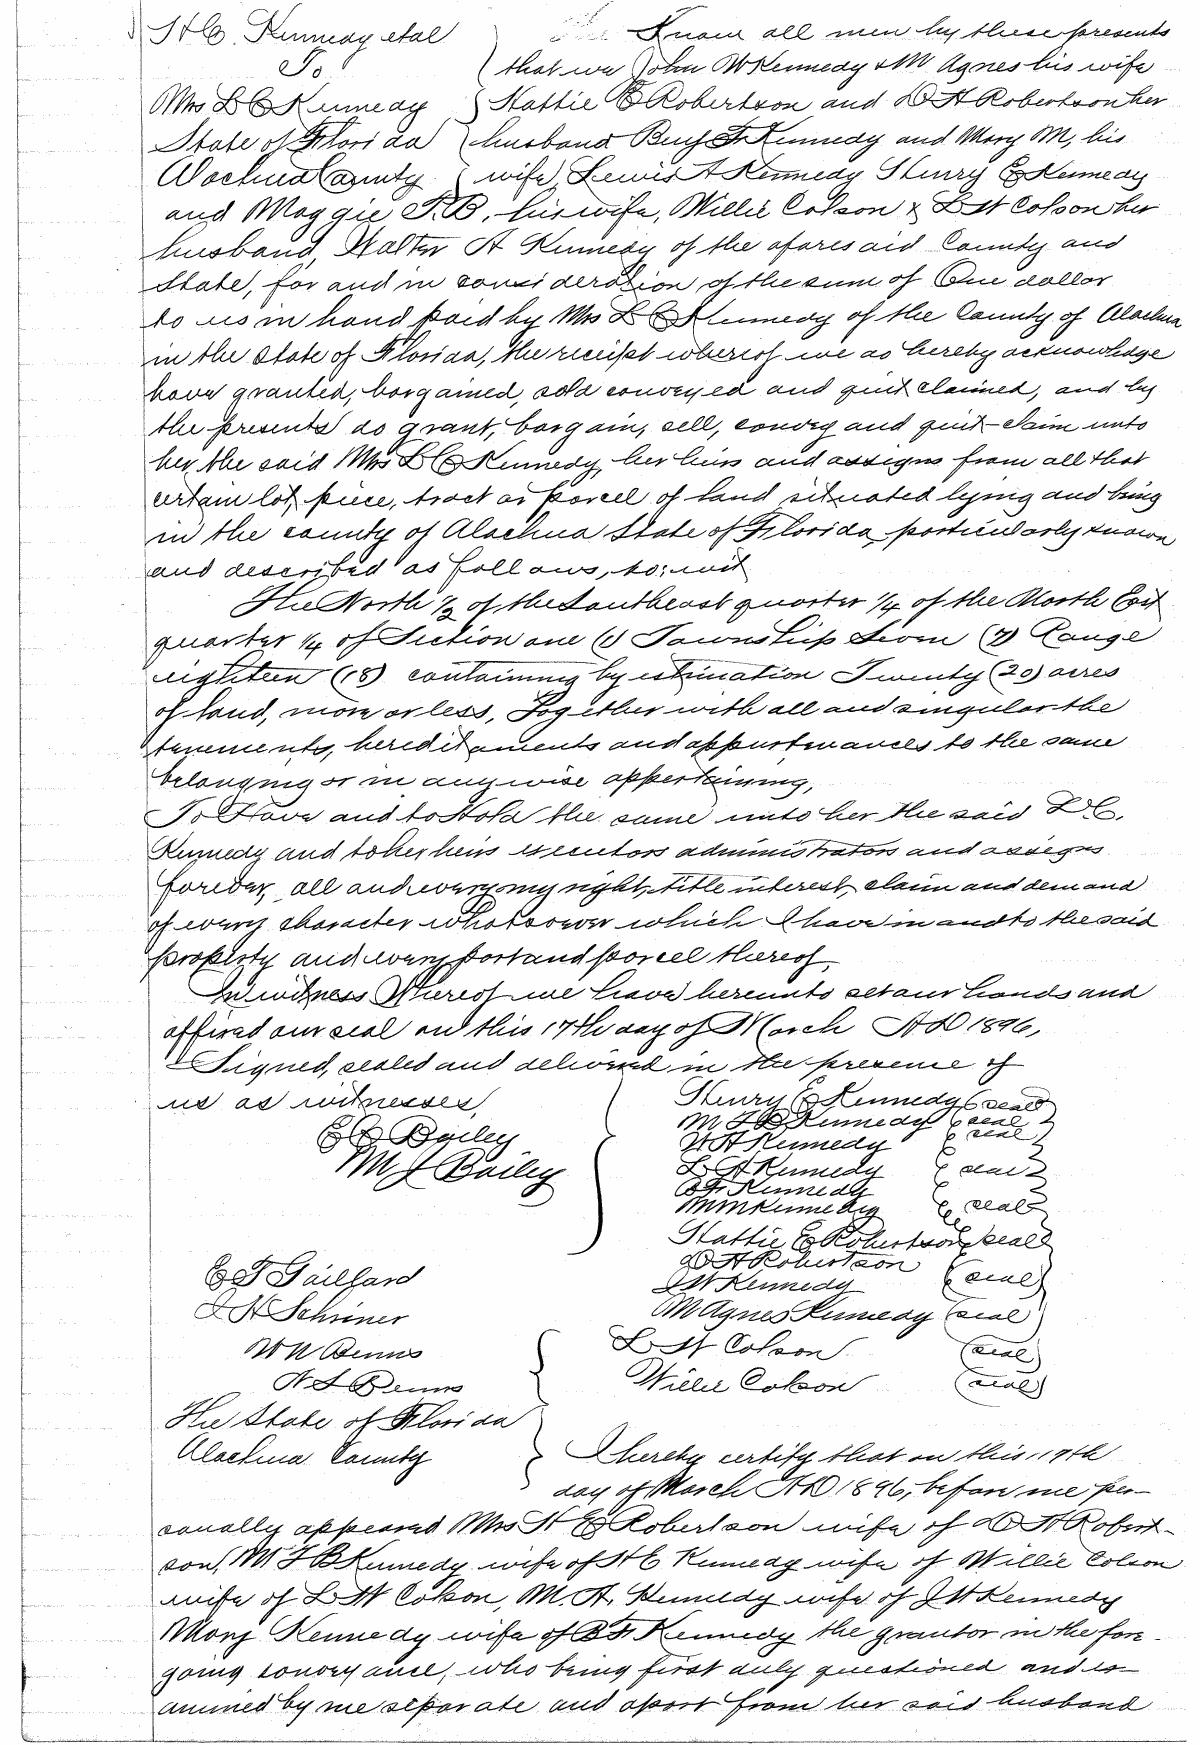 H C. Kennedy etal Know all men by these presents
To that we John W Kennedy & M Agnes his wife
Mrs L C Kennedy Hattie E Robertson and D H Robertson her
State of Florida husband Benj F Kennedy and Mary M, his
Alachua County wife, Lewis A Kennedy Henry E Kennedy
and Maggie F. B, his wife, Willie Colson & L W Colson her
husband, Walter A Kennedy of the aforesaid County and
State, for and in consideration of the sum of One dollar
to us in hand paid by Mrs L C Kennedy of the County of Alachua
in the State of Florida, the receipt whereof we do hereby acknowledge
have granted, bargained, sold conveyed and quit claimed, and by
the presents do grant, bargain, sell, convey and quit-claim unto
her, the said Mrs L C Kennedy, her heirs and assigns from all that
certain lot, piece, tract or parcel of land situated lying and being
in the county of Alachua State of Florida, particularly known
and described as follows, to: wit
The North ½ of the Southeast quarter ¼ of the North East
quarter ¼ of Section one (1) Township Seven (7) Range
eighteen (18) containing by estimation Twenty (20) acres
of land, more or less, Together with all and singular the
tenements, hereditaments and appurtenances to the same
belonging or in anywise appertaining,
To Have and to Hold the same unto her the said L C.
Kennedy and to her heirs executors administrators and assigns
forever, all and every my right, title interest, claim and demand
of every character whatsoever which I have in and to the said
property and every part and parcel thereof,
In witness Whereof we have hereunto set our hands and
affixed our seal on this 17th day of March AD 1896,
Signed, sealed and delivered in the presence of
us as witnesses, Henry E Kennedy (seal)
M F B Kennedy (seal)
E E Bailey W A Kennedy (seal)
M J Bailey L A Kennedy (seal)
B F Kennedy
M M Kennedy (seal)
Hattie E Robertson (seal)
D H Robertson
E F Gaillard J W Kennedy (seal)
L H Schriner M Agnes Kennedy (seal)
W N Benns L W Colson (seal)
Benns Willie Colson (seal)
The State of Florida
Alachua County I hereby certify that on this, 19th
day of March AD 1896, before me per-
sonally appeared Mrs H E Robertson wife of D H Robert-
son, M F B Kennedy wife of H C Kennedy wife of Willie Colson
wife of L W Colson, M. A. Kennedy wife of J W Kennedy
Mary Kennedy wife of B F Kennedy the grantor in the fore-
going conveyance, who being first duly questioned and ex-
amined by me separate and apart from her said husband